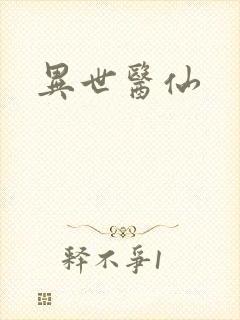 異世醫仙
釋不爭1